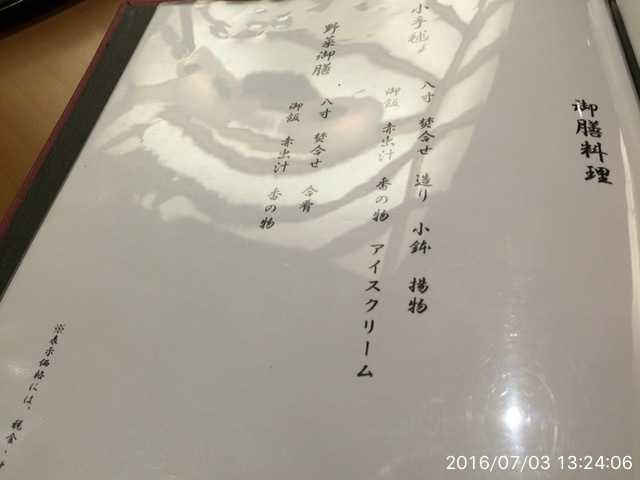 御膳料理
小手毬
八寸 焚合せ 造り 小鉢 揚物
御飯 赤出汁 香の物 アイスクリーム
野菜御膳
八寸 焚合せ 合肴
御飯 赤出汁 香の物
※表示価格には、税金・サ
2016/07/03 13:24:06